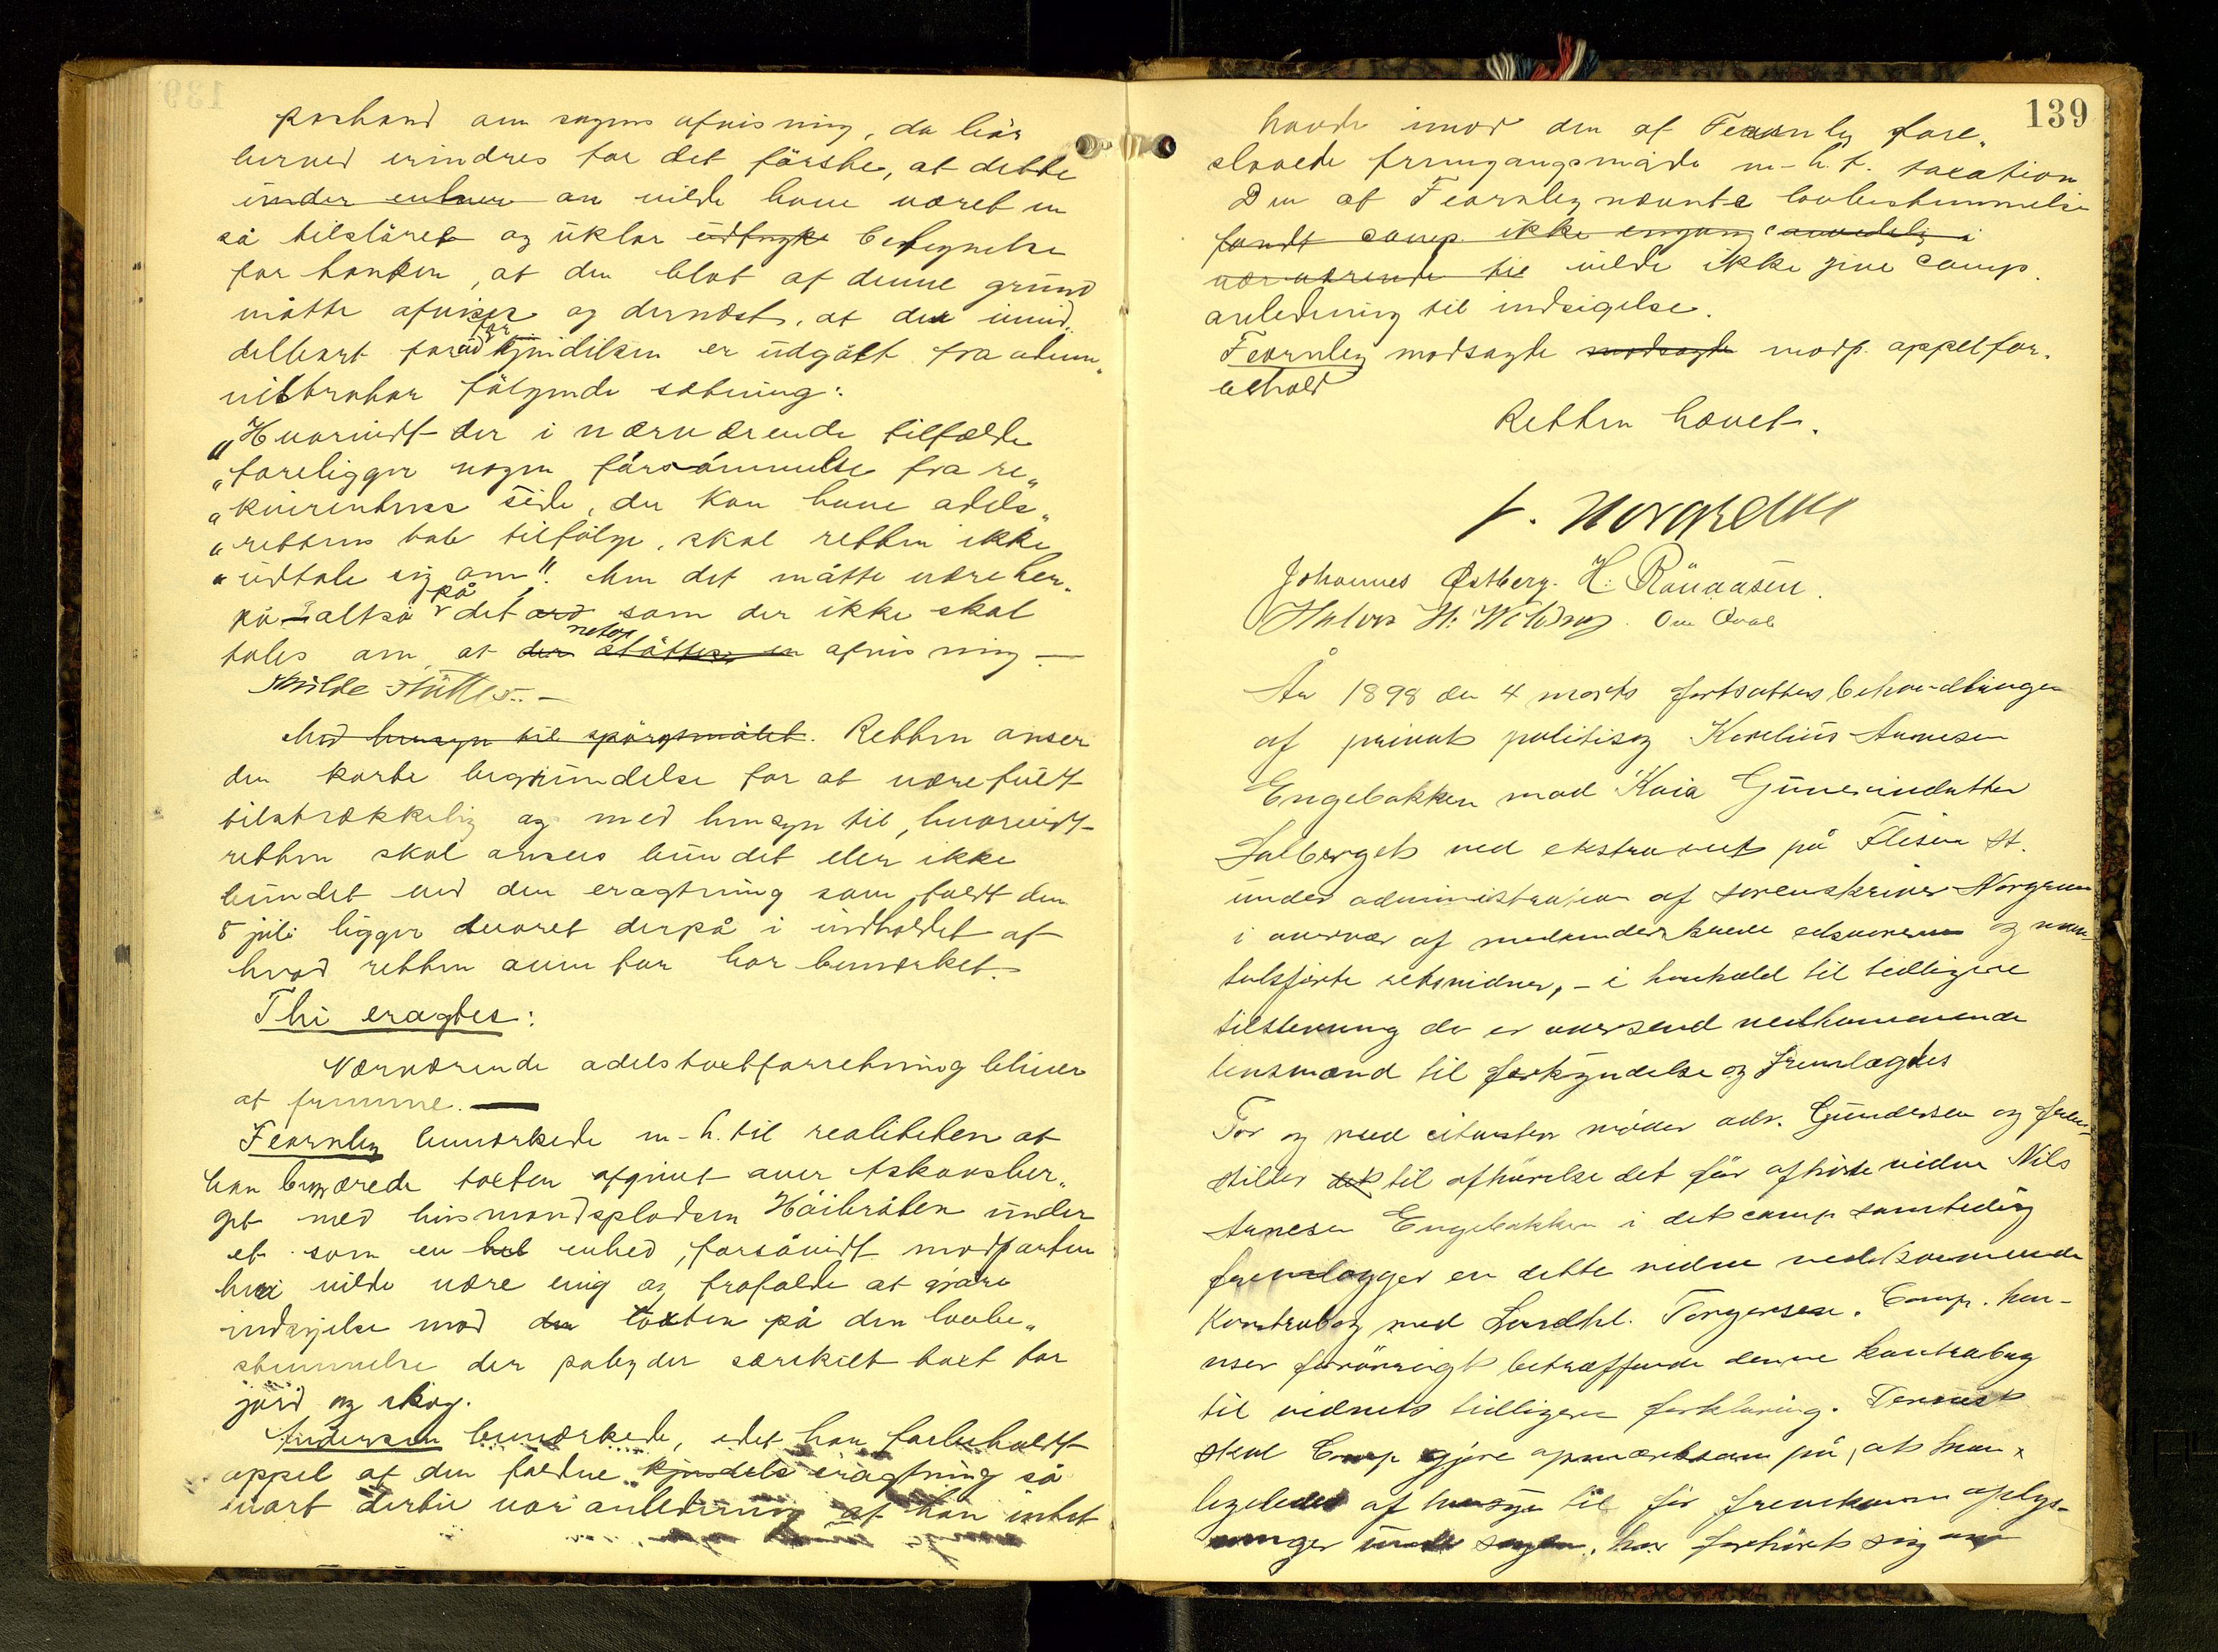 påstand om sagens afvisning, da bør
herved erindres for det første, at dette
under enhver an vilde have været en
så tilsløret og uklar udtryks betegnelse
for tanken, at den blot af denne grund
måtte afvises og dernæst, at der imid„
dellert forud for kjendelsen er udgået fra admi„
nistrator følgende sætning:
„Hvorvidt der i nærværende tilfælde
„foreligger nogen forsømmelse fra re„
„kvirentens side, der kan have odels„
„rettens tab tilfølge, skal retten ikke
„udtale sig om". Men det måtte være her„
på altså på det ord som der ikke skal
tales om, at der netop støttes en afvisning –
skulde støttes. –
Med hensyn til spørgsmålet. Retten anser
den korte begrundelse for at være fuldt
tilstrækkelig og med hensyn til, hvorvidt
retten skal ansees bundet eller ikke
bundet ved den eragtning som faldt den
5 juli ligger svaret derpå i indholdet af
hvad retten ovenfor har bemærket.
Thi eragtes:
Nærværende odelstaxtforretning bliver
at fremme.
Fearnley bemærkede m-h. til realiteten at
han begjærede taxten afgivet over Askousber„
get med husmandspladsen Høibråten under
et som en hel enhed, forsåvidt modparten
heri vilde være enig og frafalde at gjøre
indsigelse mod den taxten på den lovbe„
stemmelse der påbyder særskilt taxt for
jord og skog.
Andersen bemærkede, idet han forbeholdt
appel af den faldne kjendels eragtning så
vart dertil var anledning at han intet
139
havde imod den af Fearnley fore„
slåede fremgangsmåde m-h.t. taxation
Den af Fearnley nævnte lovbestemmelse
fandt comp. ikke engang anvendelig i
nærværende til vilde ikke give comp.
anledning til indsigelse.
Fearnley modsagte modsagte modp. appelfor„
behold
Retten hævet.
F. Norgreen
Johannes Østberg. H. Rönaasen.
Halvor H. Wilberg. Ole Qval
År 1898 den 4 marts fortsattes behandlingen
af privat politisag Karelius Arnesen
Engebakken mod Kaia Gunerusdatter
Salberget ved ekstraret på Flisen St.
under administration af sorenskriver Norgreen
i overvær af medunderskrevne edsvorne og man-
talsførte retsvidner, – i henhold til tidligere
tilstevning der er oversend vedkommende
lensmænd til forkyndelse og fremlagdes
For og med citanten møder adv. Gundersen og frem-
stiller det til afhørelse det før afhørte vidne Nils
Arnesen Engebakken i det comp samtidig
fremlægger en dette vidne vedkommende
Kontrabog med Landhl. Torgersen. Comp. hen-
viser forøvrigt betræffende denne kontrabog
til vidnets tidligere forklaring. Dernæst
skal Comp gjøre opmærksom på, at han
ligeledes af hensyn til før fremkomne oplys-
ninger under sagen, har forhørt sig om